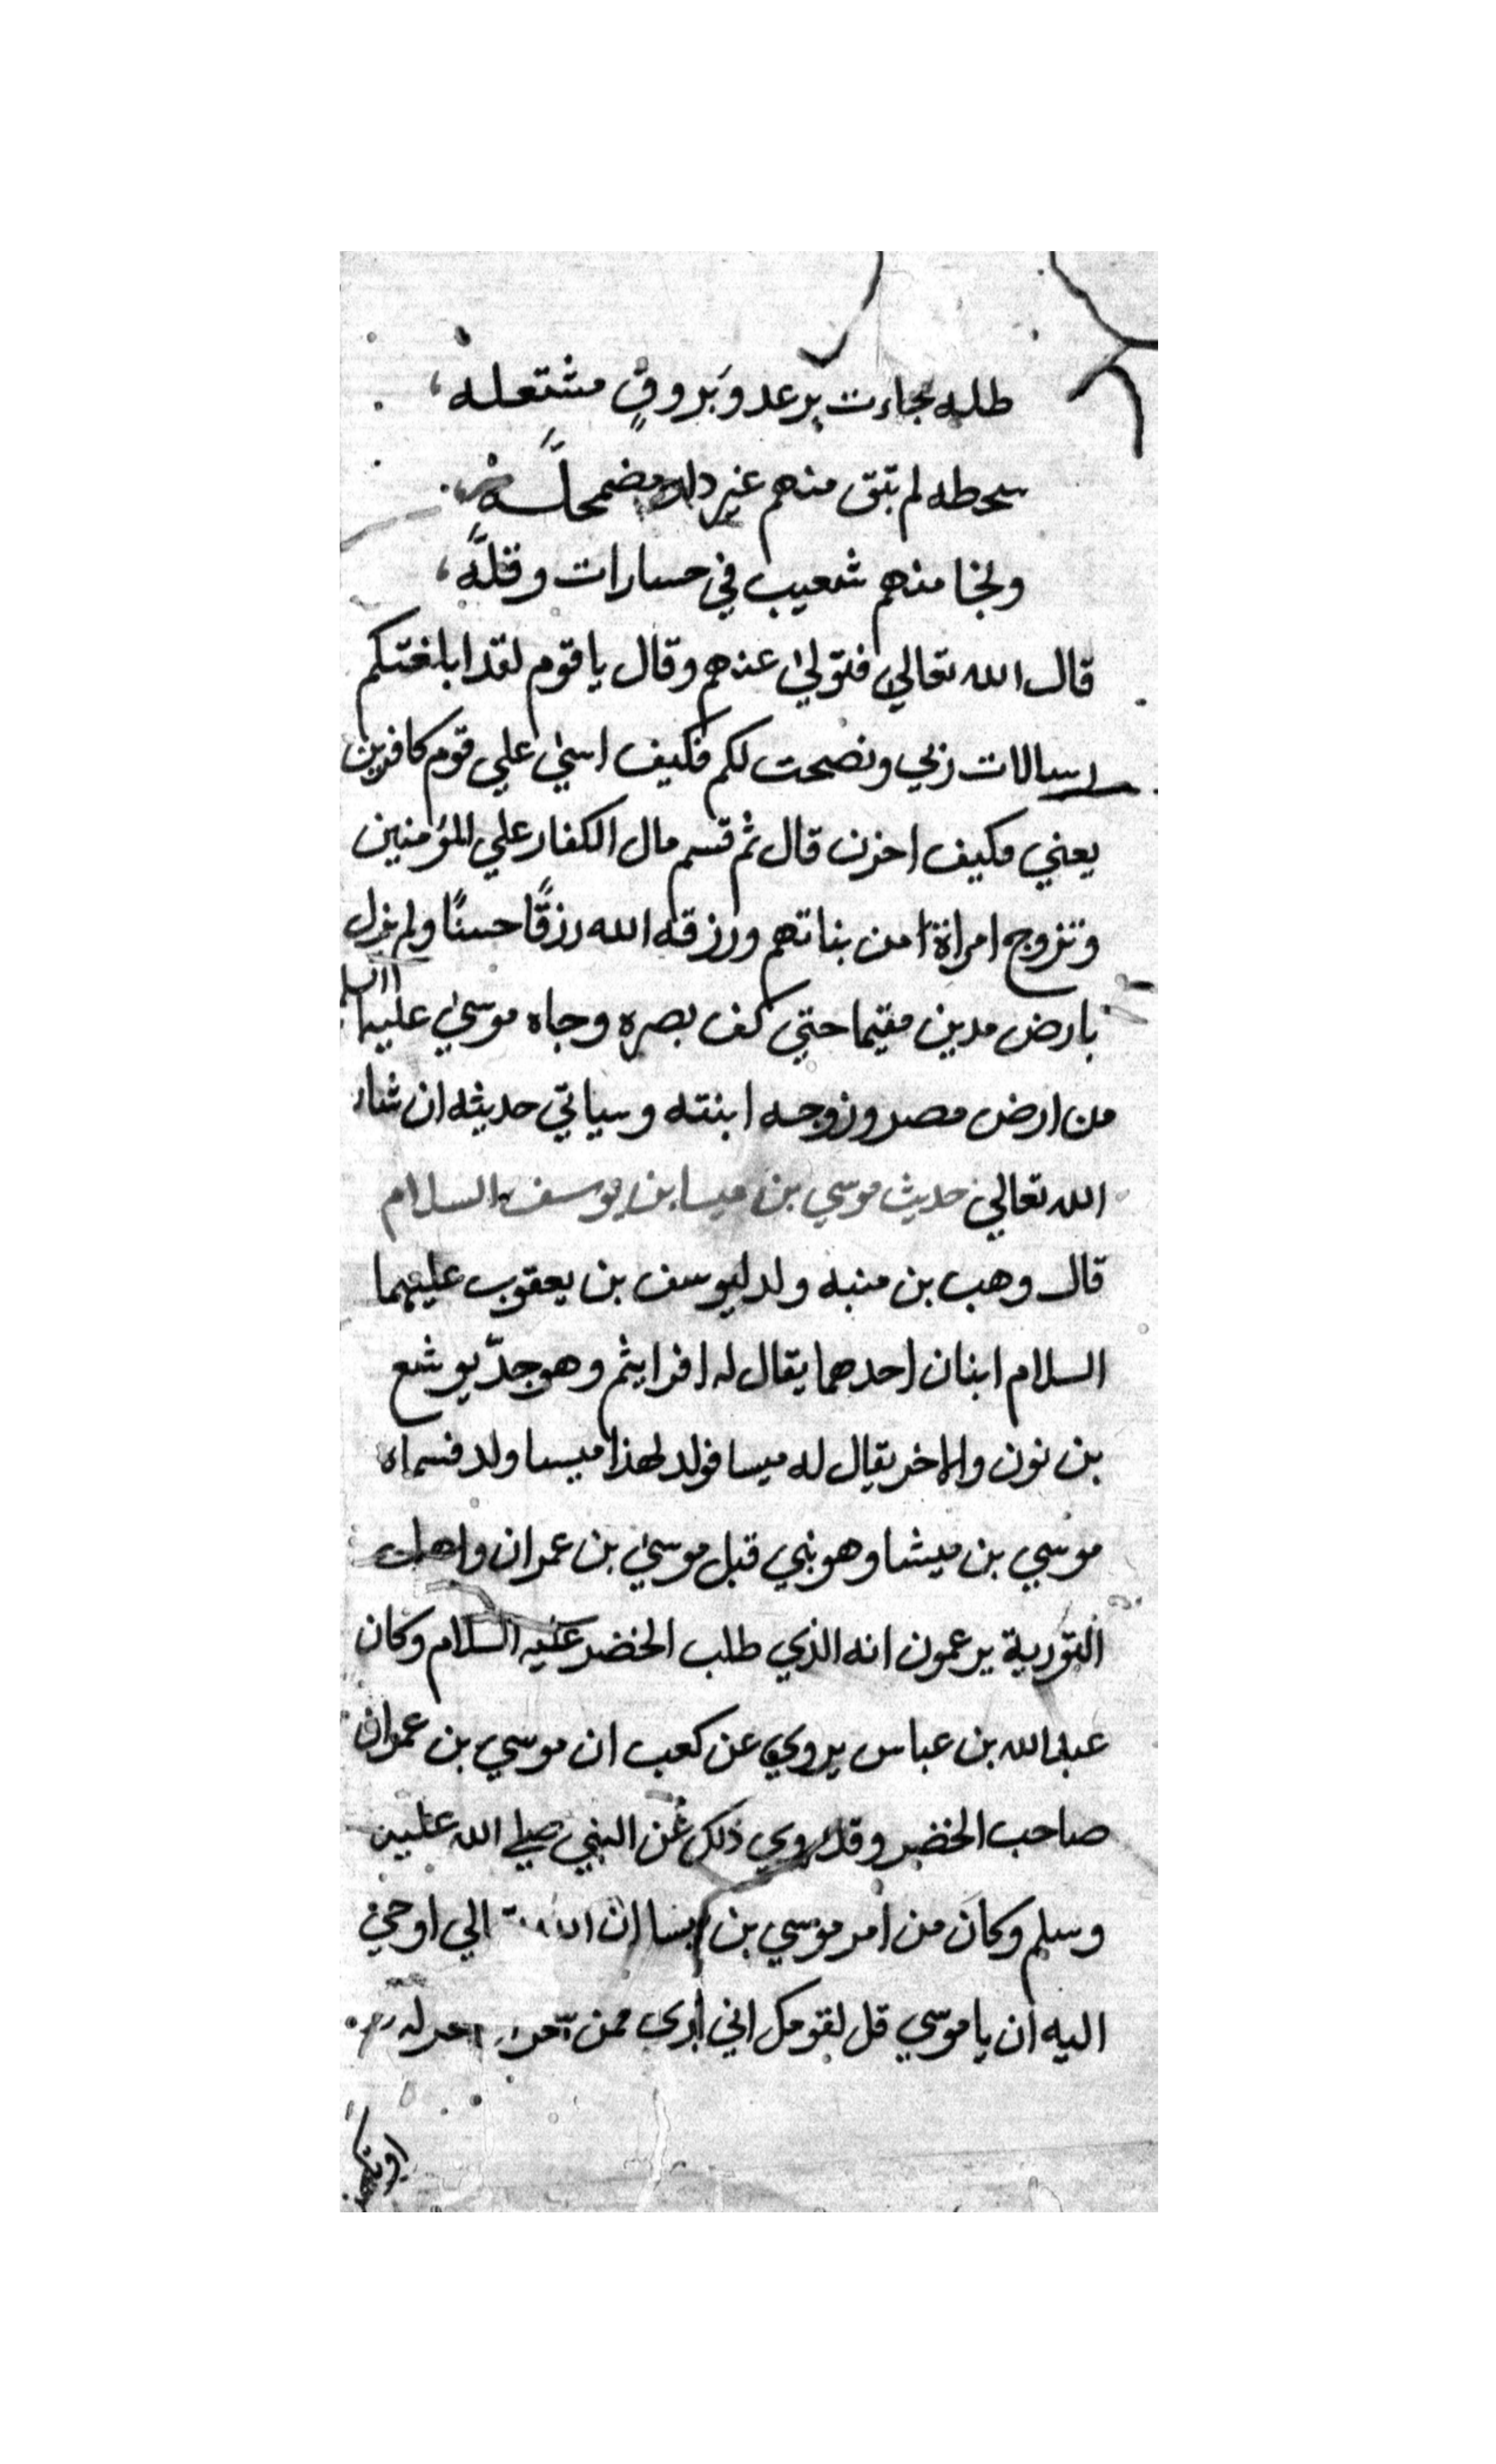 طله فجاءت برعد وبروق مشتعله
سحطه لم تبق منهم غير دله مضمحله
ونجا منهم شعيب في حسارات وقله
قال الله تعالي فتولي عنهم وقال يا قوم لقد ابلغتكم
رسالات ربي ونصحت لكم فكيف اسي علي قوم كافرين
يعني فكيف احزن قال ثم قسم مال الكفار علي المؤمنين
وتزوج امراة من بناتهم ورزقه الله رزقًا حسنًا ولم يزل
بارض مدين مقيما حتي كف بصره وجاه موسي عليهما السلم
من ارض مصر وزوجه ابنته وسياتي حديثه ان شاء
الله تعالي حديث موسي بن ميسا بن يوسف السلام
قال وهب بن منبه ولد ليوسف بن يعقوب عليهما
السلام ابنان احدهما يقال له افرايثم وهو جدّ يوشع
بن نون والاخر يقال له ميسا فولد لهذا ميسا ولد فسماه
موسي بن ميشا وهو نبي قبل موسي بن عمران واهل
التورية يرعمون انه الذي طلب الخضر عليه السلام وكان
عبد الله بن عباس يروي عن كعب ان موسي بن عمران
صاحب الخضر وقد روي ذلك عن النبي صلي الله عليه
وسلم وكان من امر موسي بن ان الي اوحي
اليه ان يا موسي قل لقومك اني بري ممن له